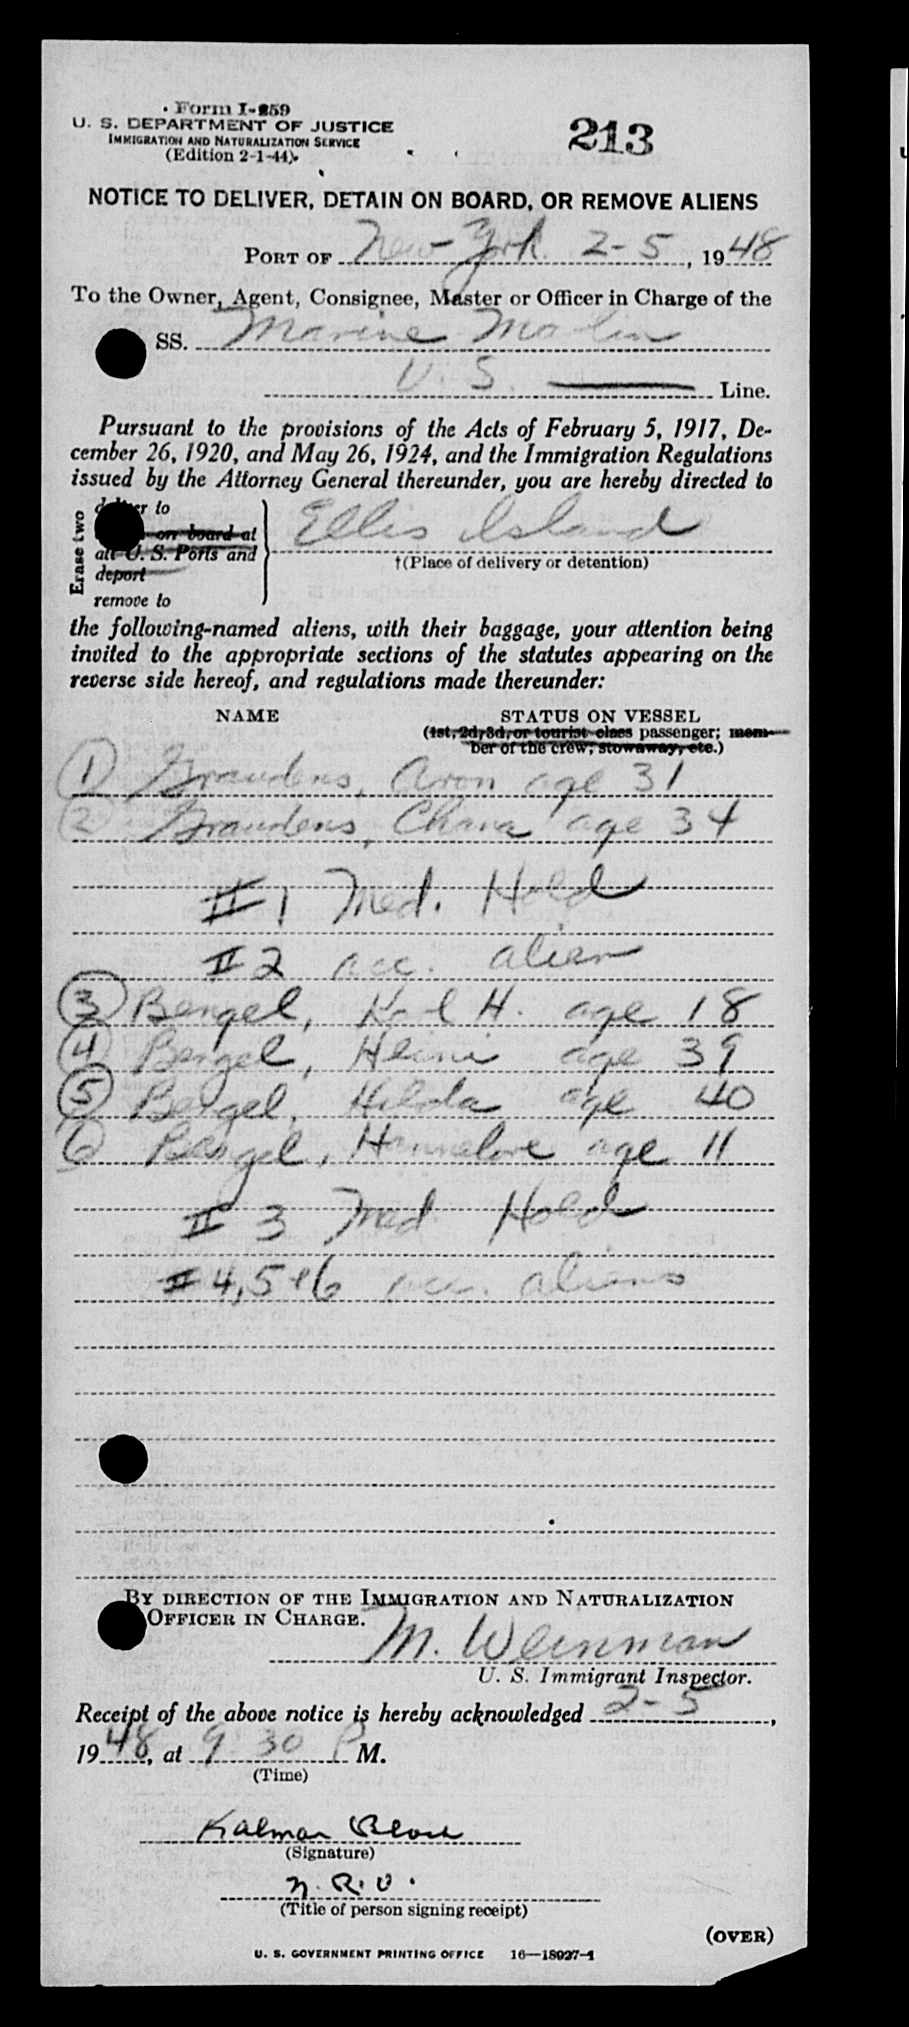 Form I-259
213
U. S. DEPARTMENT OF JUSTICE
IMMIGRATION AND NATURALIZATION SERVICE
(Edition 2-1-44)
NOTICE TO DELIVER, DETAIN ON BOARD, OR REMOVE ALIENS
PORT OF New York 2-5, 1948
To the Owner, Agent, Consignee, Master or Officer in Charge of the
SS. Marine Marlin
U. S. Line.
Pursuant to the provisions of the Acts of February 5, 1917, De-
cember 26, 1920, and May 26, 1924, and the Immigration Regulations
issued by the Attorney General thereunder, you are hereby directed to
Erase two
deliver to
on board at
all U. S. Ports and
deport
remove to
Ellis Island
†(Place of delivery or detention)
the following-named aliens, with their baggage, your attention being
invited to the appropriate sections of the statutes appearing on the
reverse side hereof, and regulations made thereunder:
NAME STATUS ON VESSEL
(1st, 2d, 3d, or tourist class passenger; mem-
ber of the crew; stowaway, etc.)
1 Graudens, Aron age 31
2 Graudens, Chana age 34
#1 Med. Hold
#2 acc. alien
3 Bengel, Karl H. age 18
4 Bengel, Heini age 39
5 Bengel, Hilda age 40
6 Bengel, Hannelore age 11
#3 Med. Hold
#4, 5 + 6 acc. aliens
BY DIRECTION OF THE IMMIGRATION AND NATURALIZATION
OFFICER IN CHARGE.
M. Weinman
U. S. Immigrant Inspector.
Receipt of the above notice is hereby acknowledged 2-5,
1948, at 9 30 P M.
(Time)
Kalman
(Signature)
(Title of person signing receipt)
(OVER)
U. S. GOVERNMENT PRINTING OFFICE 16—18927-1